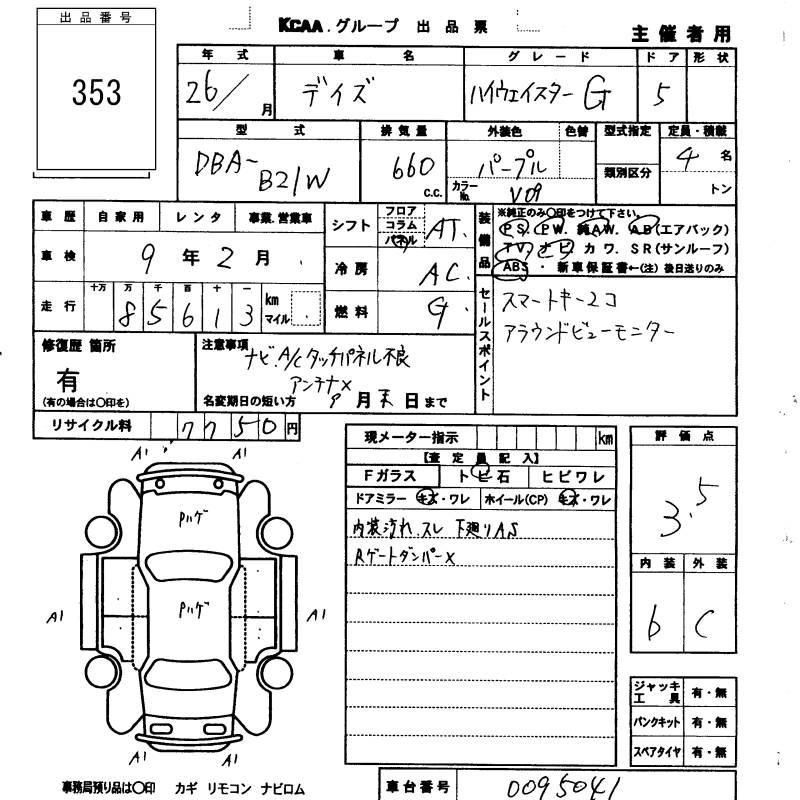 出品番号
353
KCAA.グループ 出品票
主催者用
年式 車名 グレード ドア 形状
26/ 月 デイズ ハイウェイスター G 5
型式 排気量 外装色 色替 型式指定 定員・積載
DBA-B21W 660 c.c. パープル 類別区分 4 名
カラーNo. V09 トン
車歴 自家用 レンタ 事業.営業車
シフト フロア コラム パネル AT.
装備品 ※純正のみ○印をつけて下さい。
PS. PW. 純AW. AB(エアバック)
TV. ナビ カワ. SR(サンルーフ)
ABS ・ 新車保証書←(注) 後日送りのみ
車検 9 年 2 月
冷房 AC.
走行 十万 万 千 百 十 一 km マイル
85613
燃料 G
セールスポイント
スマートキー2コ
アラウンドビューモニター
修復歴 箇所
有
(有の場合は○印を)
注意事項
ナビ.A/Cタッチパネル不良
アンテナ×
名変期日の短い方 9 月 末 日 まで
リサイクル料 7750 円
現メーター指示 km
【査定員記入】
Fガラス トビ石 ヒビワレ
ドアミラー キズ・ワレ ホイール(CP) キズ・ワレ
内装汚れ.スレ 下廻りAS
Rゲートダンパー×
評価点
3.5
内装 外装
b C
A1 A1
Pハゲ
Pハゲ
A1 A1
A1 A1
ジャッキ工具 有・無
パンクキット 有・無
スペアタイヤ 有・無
事務局預り品は○印 カギ リモコン ナビロム
車台番号 0095041